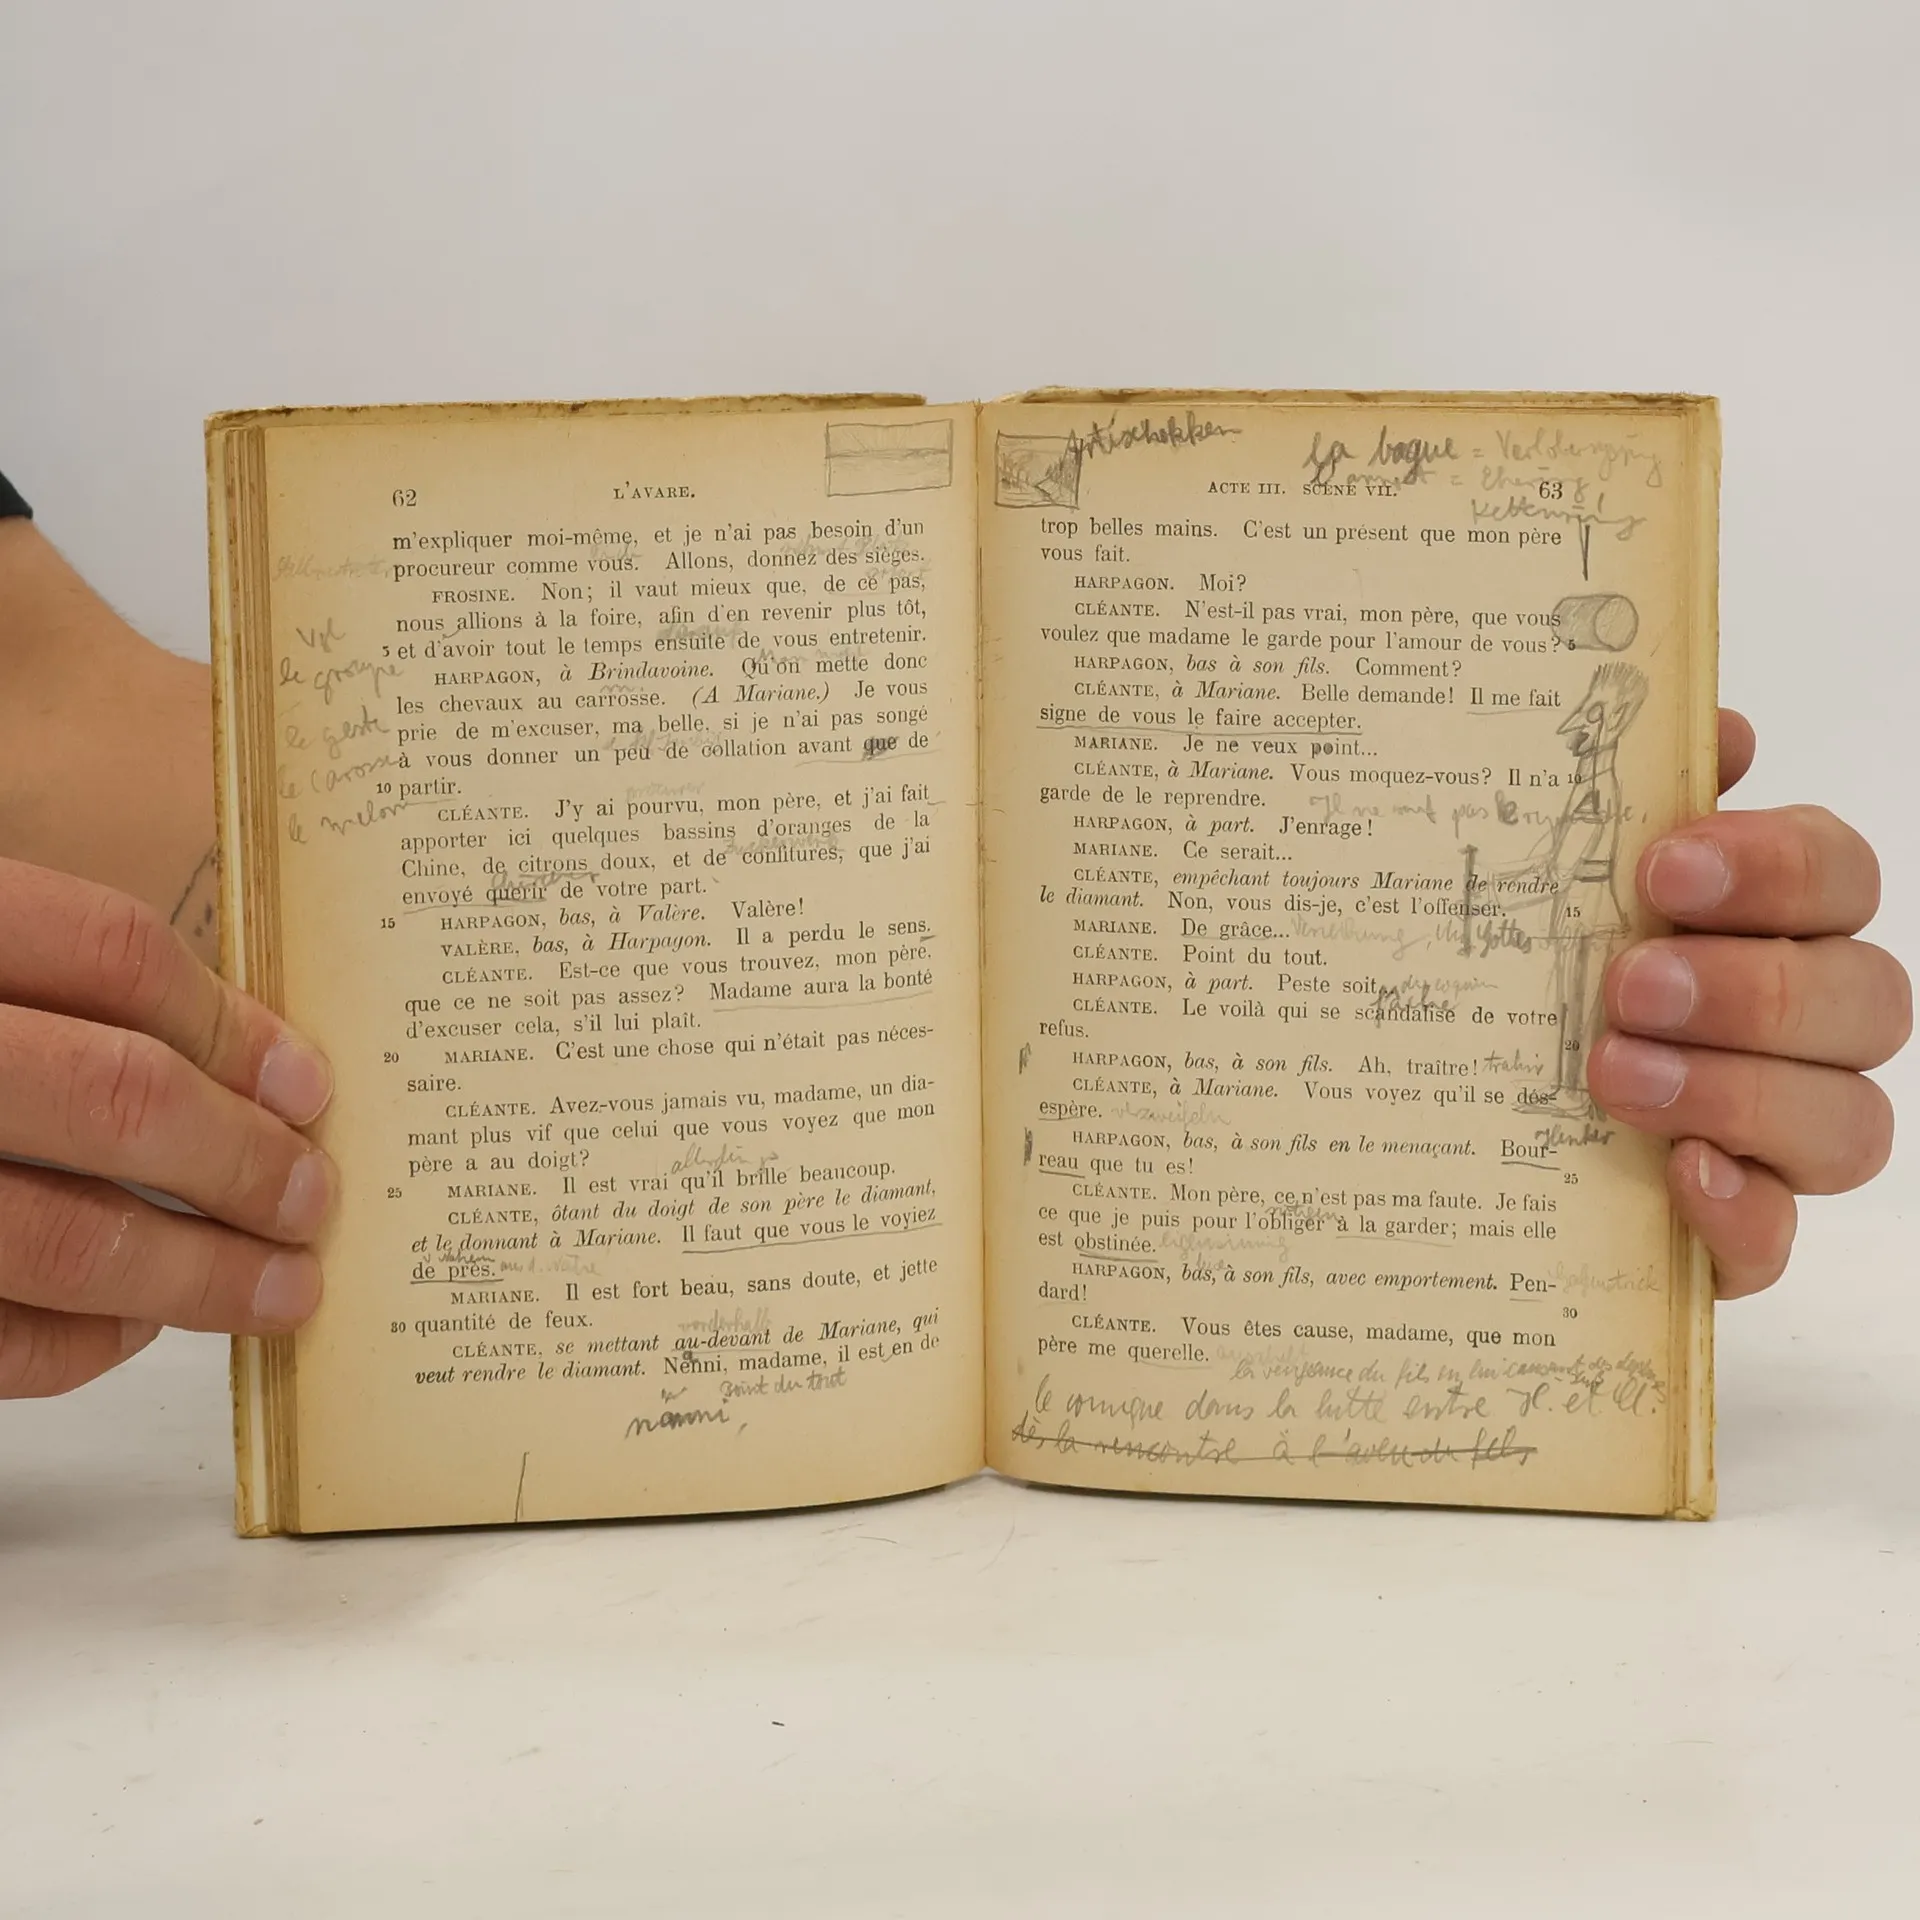 62
L'AVARE.
m'expliquer moi-même, et je n'ai pas besoin d'un
procureur comme vous. Allons, donnez des sièges.
FROSINE. Non; il vaut mieux que, de ce pas,
nous allions à la foire, afin d'en revenir plus tôt,
5 et d'avoir tout le temps ensuite de vous entretenir.
HARPAGON, à Brindavoine. Qu'on mette donc
les chevaux au carrosse. (A Mariane.) Je vous
prie de m'excuser, ma belle, si je n'ai pas songé
à vous donner un peu de collation avant que de
10 partir.
CLÉANTE. J'y ai pourvu, mon père, et j'ai fait
apporter ici quelques bassins d'oranges de la
Chine, de citrons doux, et de confitures, que j'ai
envoyé querir de votre part.
15 HARPAGON, bas, à Valère. Valère!
VALÈRE, bas, à Harpagon. Il a perdu le sens.
CLÉANTE. Est-ce que vous trouvez, mon père,
que ce ne soit pas assez? Madame aura la bonté
d'excuser cela, s'il lui plaît.
20 MARIANE. C'est une chose qui n'était pas néces-
saire.
CLÉANTE. Avez-vous jamais vu, madame, un dia-
mant plus vif que celui que vous voyez que mon
père a au doigt?
allerdings
25 MARIANE. Il est vrai qu'il brille beaucoup.
CLÉANTE, ôtant du doigt de son père le diamant,
et le donnant à Mariane. Il faut que vous le voyiez
de près.
MARIANE. Il est fort beau, sans doute, et jette
30 quantité de feux.
CLÉANTE, se mettant au-devant de Mariane, qui
veut rendre le diamant. Nenni, madame, il est en de
point du tout
nanni,
Vgl
le groupe
le geste
le Carosse
le melon
Artischokken
la bague = Verlobungsring
= Ehering
Kettenring
ACTE III. SCÈNE VII.
63
trop belles mains. C'est un présent que mon père
vous fait.
HARPAGON. Moi?
CLÉANTE. N'est-il pas vrai, mon père, que vous
voulez que madame le garde pour l'amour de vous? 5
HARPAGON, bas à son fils. Comment?
CLÉANTE, à Mariane. Belle demande! Il me fait
signe de vous le faire accepter.
MARIANE. Je ne veux point...
CLÉANTE, à Mariane. Vous moquez-vous? Il n'a 10
garde de le reprendre.
HARPAGON, à part. J'enrage!
MARIANE. Ce serait...
CLÉANTE, empêchant toujours Mariane de rendre
le diamant. Non, vous dis-je, c'est l'offenser. 15
MARIANE. De grâce...
CLÉANTE. Point du tout.
HARPAGON, à part. Peste soit...
du coquin
CLÉANTE. Le voilà qui se scandalise de votre
refus. 20
HARPAGON, bas, à son fils. Ah, traître! trahir
CLÉANTE, à Mariane. Vous voyez qu'il se dés-
espère. verzweifeln
HARPAGON, bas, à son fils en le menaçant. Bour-
Henker
reau que tu es! 25
CLÉANTE. Mon père, ce n'est pas ma faute. Je fais
ce que je puis pour l'obliger à la garder; mais elle
est obstinée.
HARPAGON, bas, à son fils, avec emportement. Pen-
dard! 30
CLÉANTE. Vous êtes cause, madame, que mon
père me querelle.
la vengeance du fils en lui causant des
le comique dans la lutte entre H. et Cl.
dès la rencontre à l'aveu du fils